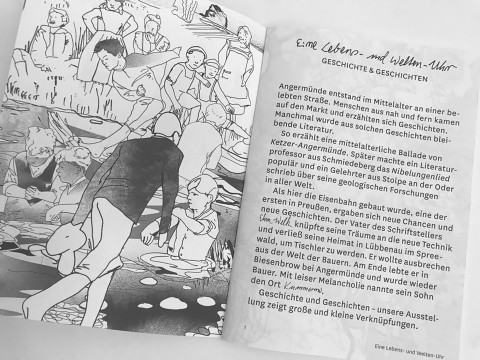 Eine Lebens- und Welten-Uhr
GESCHICHTE & GESCHICHTEN
Angermünde entstand im Mittelalter an einer be-
lebten Straße. Menschen aus nah und fern kamen
auf den Markt und erzählten sich Geschichten.
Manchmal wurde aus solchen Geschichten blei-
bende Literatur.
So erzählt eine mittelalterliche Ballade von
Ketzer-Angermünde, Später machte ein Literatur-
professor aus Schmiedeberg das Nibelungenlied
populär und ein Gelehrter aus Stolpe an der Oder
schrieb über seine geologischen Forschungen
in aller Welt.
Als hier die Eisenbahn gebaut wurde, eine der
ersten in Preußen, ergaben sich neue Chancen und
neue Geschichten. Der Vater des Schriftstellers
Ehm Welk knüpfte seine Träume an die neue Technik
und verließ seine Heimat in Lübbenau im Spree-
wald, um Tischler zu werden. Er wollte ausbrechen
aus der Welt der Bauern. Am Ende lebte er in
Biesenbrow bei Angermünde und wurde wieder
Bauer. Mit leiser Melancholie nannte sein Sohn
den Ort Kummerow.
Geschichte und Geschichten - unsere Ausstel-
lung zeigt große und kleine Verknüpfungen.
Eine Lebens- und Welten-Uhr